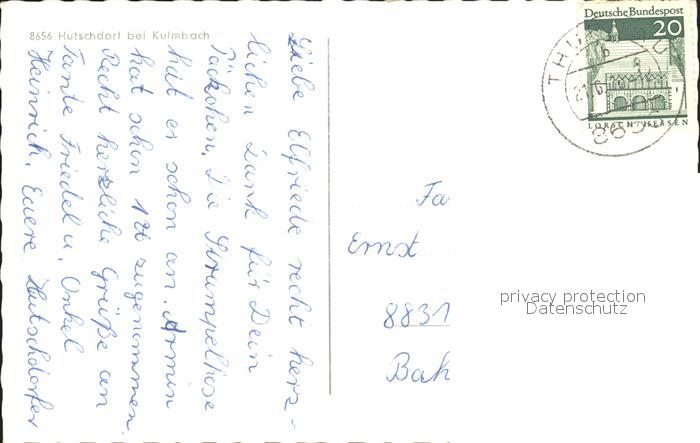 8656 Hutschdorf bei Kulmbach
Liebe Elfriede recht herz-
lichen Dank für Dein
Päckchen. Die Strumpelhose
hat er schon an. Armin
hat schon zugenommen.
Recht herzliche Grüße an
Tante Friedel u. Onkel
Heinrich. Euere Hutschdorfer
Deutsche Bundespost
20
LORSCH/HESSEN
THU
Fa
Ernst
8831
Bah
privacy protection
Datenschutz